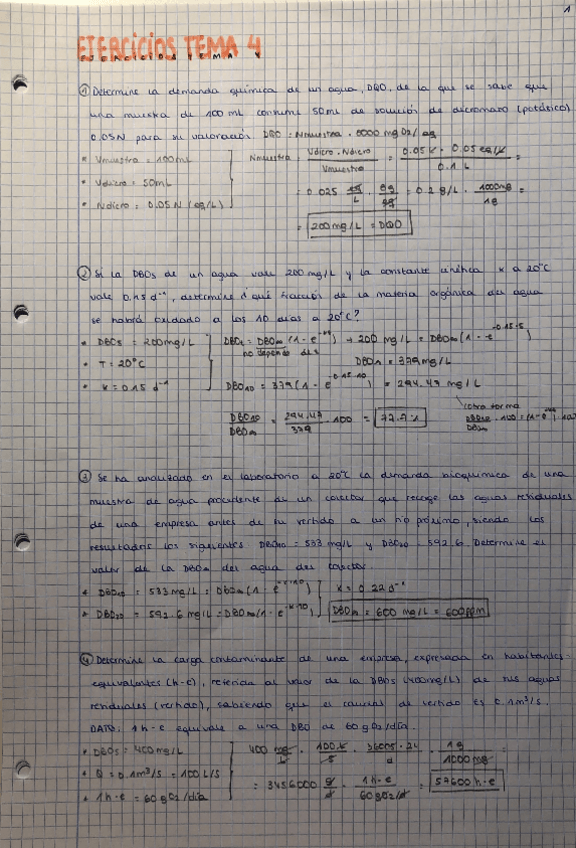 1
EJERCICIOS TEMA 4
EJERCICIOS TEMA 4
① Determine la demanda química de un agua, DQO, de la que se sabe que
una muestra de 100 ml consume 50 ml de solución de dicromato (potásico)
0.05N para su valoración. DQO = Nmuestra · 8000 mg O2/eq
• Vmuestra = 100mL
Nmuestra = Vdicro · Ndicro / Vmuestra = 0.05 L · 0.05 eq/L / 0.1 L =
• Vdicro = 50mL
= 0.025 eq/L · 8g/eq = 0.2 g/L · 1000mg/1g =
• Ndicro = 0.05 N (eq/L)
= 200 mg/L = DQO
② Si la DBO5 de un agua vale 200 mg/L y la constante cinética K a 20°C
vale 0.15 d⁻¹, determine ¿qué fracción de la materia orgánica del agua
se habrá oxidado a los 10 días a 20°C?
• DBO5 = 200mg/L
DBOt = DBO∞ (1 - e^-kt) → 200 mg/L = DBO∞ (1 - e^-0.15·5)
• T = 20°C
no depende del
DBO∞ = 379 mg/L
• K = 0.15 d⁻¹
DBO10 = 379 (1 - e^-0.15·10) = 294.43 mg/L
DBO10/DBO∞ = 294.43/379 · 100 = 77.7%
(otra forma
③ Se ha analizado en el laboratorio a 20°C la demanda bioquímica de una
muestra de agua procedente de un colector que recoge las aguas residuales
de una empresa antes de su vertido a un río próximo, siendo los
resultados los siguientes DBO10 = 533 mg/L y DBO20 = 592.6. Determine el
valor de la DBO∞ del agua del colector.
• DBO10 = 533 mg/L = DBO∞ (1 - e^-k·10)
K = 0.22 d⁻¹
• DBO20 = 592.6 mg/L = DBO∞ (1 - e^-k·20)
DBO∞ = 600 mg/L = 600 ppm
④ Determine la carga contaminante de una empresa, expresada en habitantes-
equivalentes (h-e), referida al valor de la DBO5 (400mg/L) de sus aguas
residuales (vertido), sabiendo que el caudal de vertido es 0.1 m³/s.
DATO: 1 h-e equivale a una DBO de 60 g O2/día.
• DBO5 = 400 mg/L
400 mg/L · 100 L/s · 3600s · 24/d · 1g/1000mg =
• Q = 0.1 m³/s = 100 L/s
= 3456000 g/d · 1h-e/60 gO2/d = 57600 h-e
• 1 h-e = 60 g O2/día